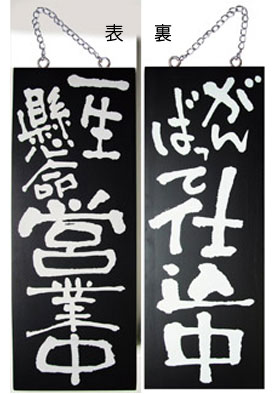 表 裏
一生
懸命
営業中
がん
ばって
仕込中